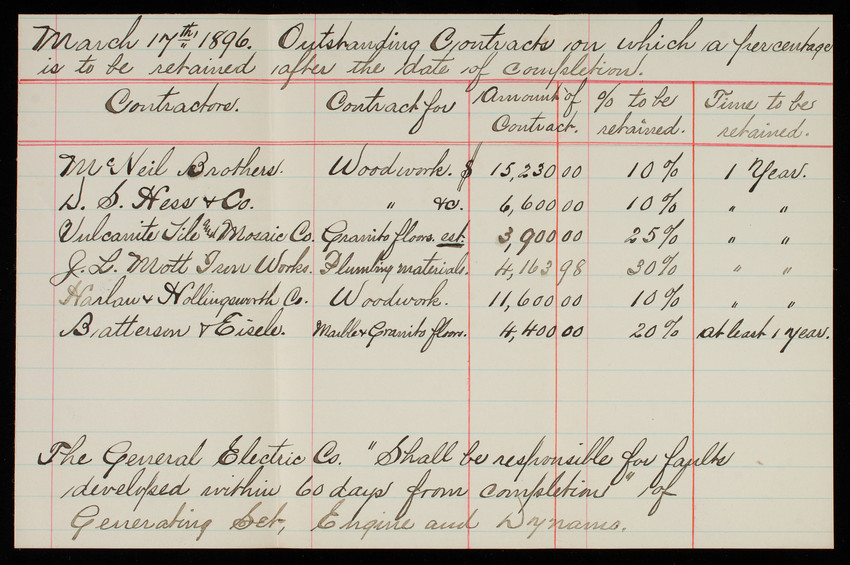 March 17th 1896. Outstanding Contracts on which a percentage
is to be retained after the date of completion.
Contractors. Contract for Amount of Contract. % to be retained. Time to be retained.
McNeil Brothers. Woodwork. $ 15,230 00 10% 1 Year.
D. S. Hess & Co. " &c. 6,600 00 10% " "
Vulcanite Tile and Mosaic Co. Granito floors. est: 3,900 00 25% " "
J. L. Mott Iron Works. Plumbing materials. 4,163 98 30% " "
Harlan & Hollingsworth Co. Woodwork. 11,600 00 10% " "
Batterson & Eisele. Marble & Granito floors. 4,400 00 20% at least 1 year.
The General Electric Co. "Shall be responsible for faults
developed within 60 days from completion" of
Generating Set, Engine and Dynamo.